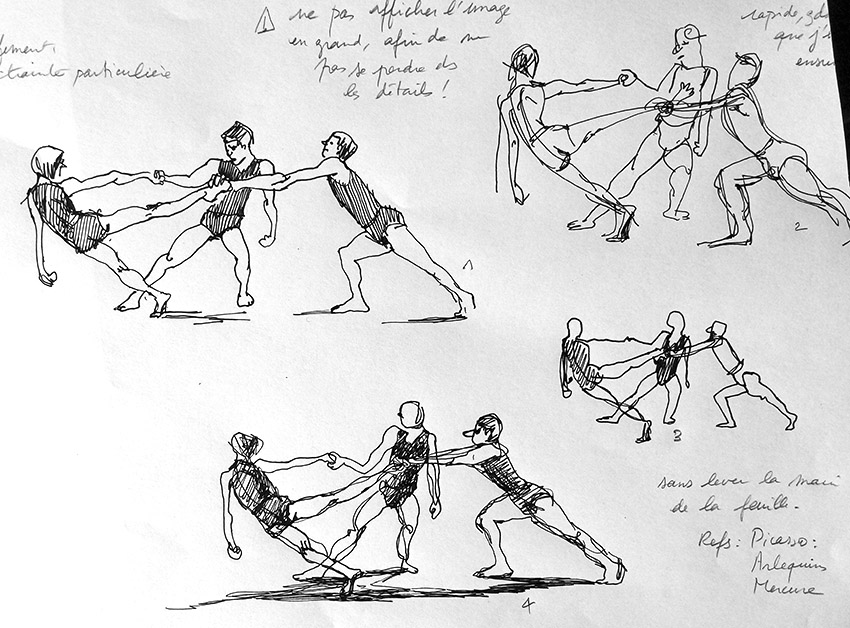 ⚠ ne pas afficher l'image
en grand, afin de ne
pas se perdre ds
les détails !
particulière
rapide,
que j'
1
2
3
4
sans lever la main
de la feuille.
Refs : Picasso :
Arlequins
Mercure